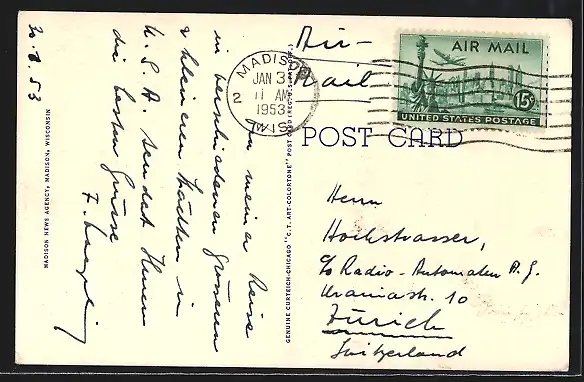 Air-
mail
AIR MAIL
15¢
UNITED STATES POSTAGE
MADISON
JAN 31
11 AM
1953
2
WIS.
POST CARD
Herrn
Hochstrasser,
c/o Radio-Automaten A.G.
Uraniastr. 10
Zürich
Switzerland
Auf meiner Reise
in verschiedenen grösseren
& kleineren Städten in
U.S.A. sendet Ihnen
die besten Grüsse
F.
30.1.53
MADISON NEWS AGENCY, MADISON, WISCONSIN
GENUINE CURTEICH-CHICAGO "C.T. ART-COLORTONE" POST CARD (REG. U.S. PAT. OFF.)